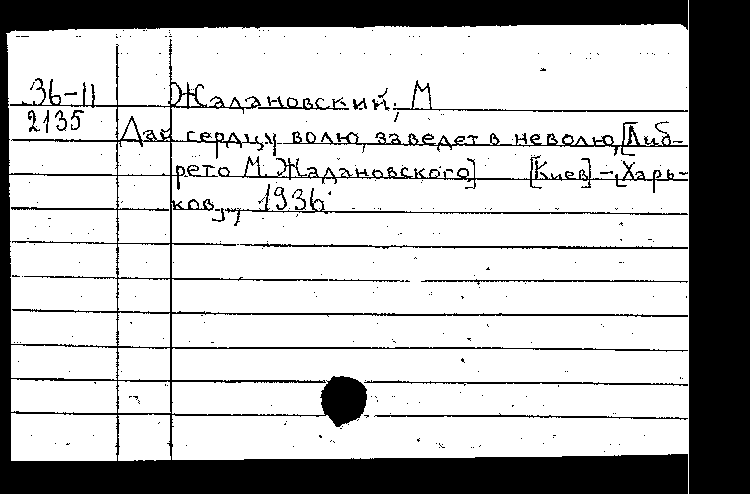 36-11 Жадановский, М
2135 Дай сердцу волю, заведет в неволю, [Либ-
рето М. Жадановского] [Киев] - [Харь-
ков], 1936.